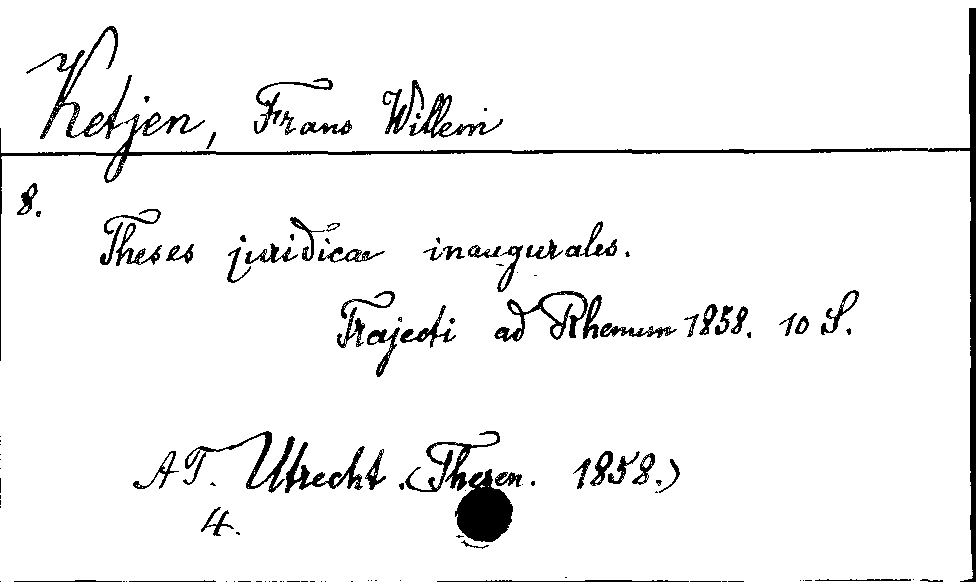 Ketjen, Frans Willem
8.
Theses juridicae inaugurales.
Trajecti ad Rhenum 1858. 10 S.
AT. Utrecht. (Thesen. 1858.)
4.